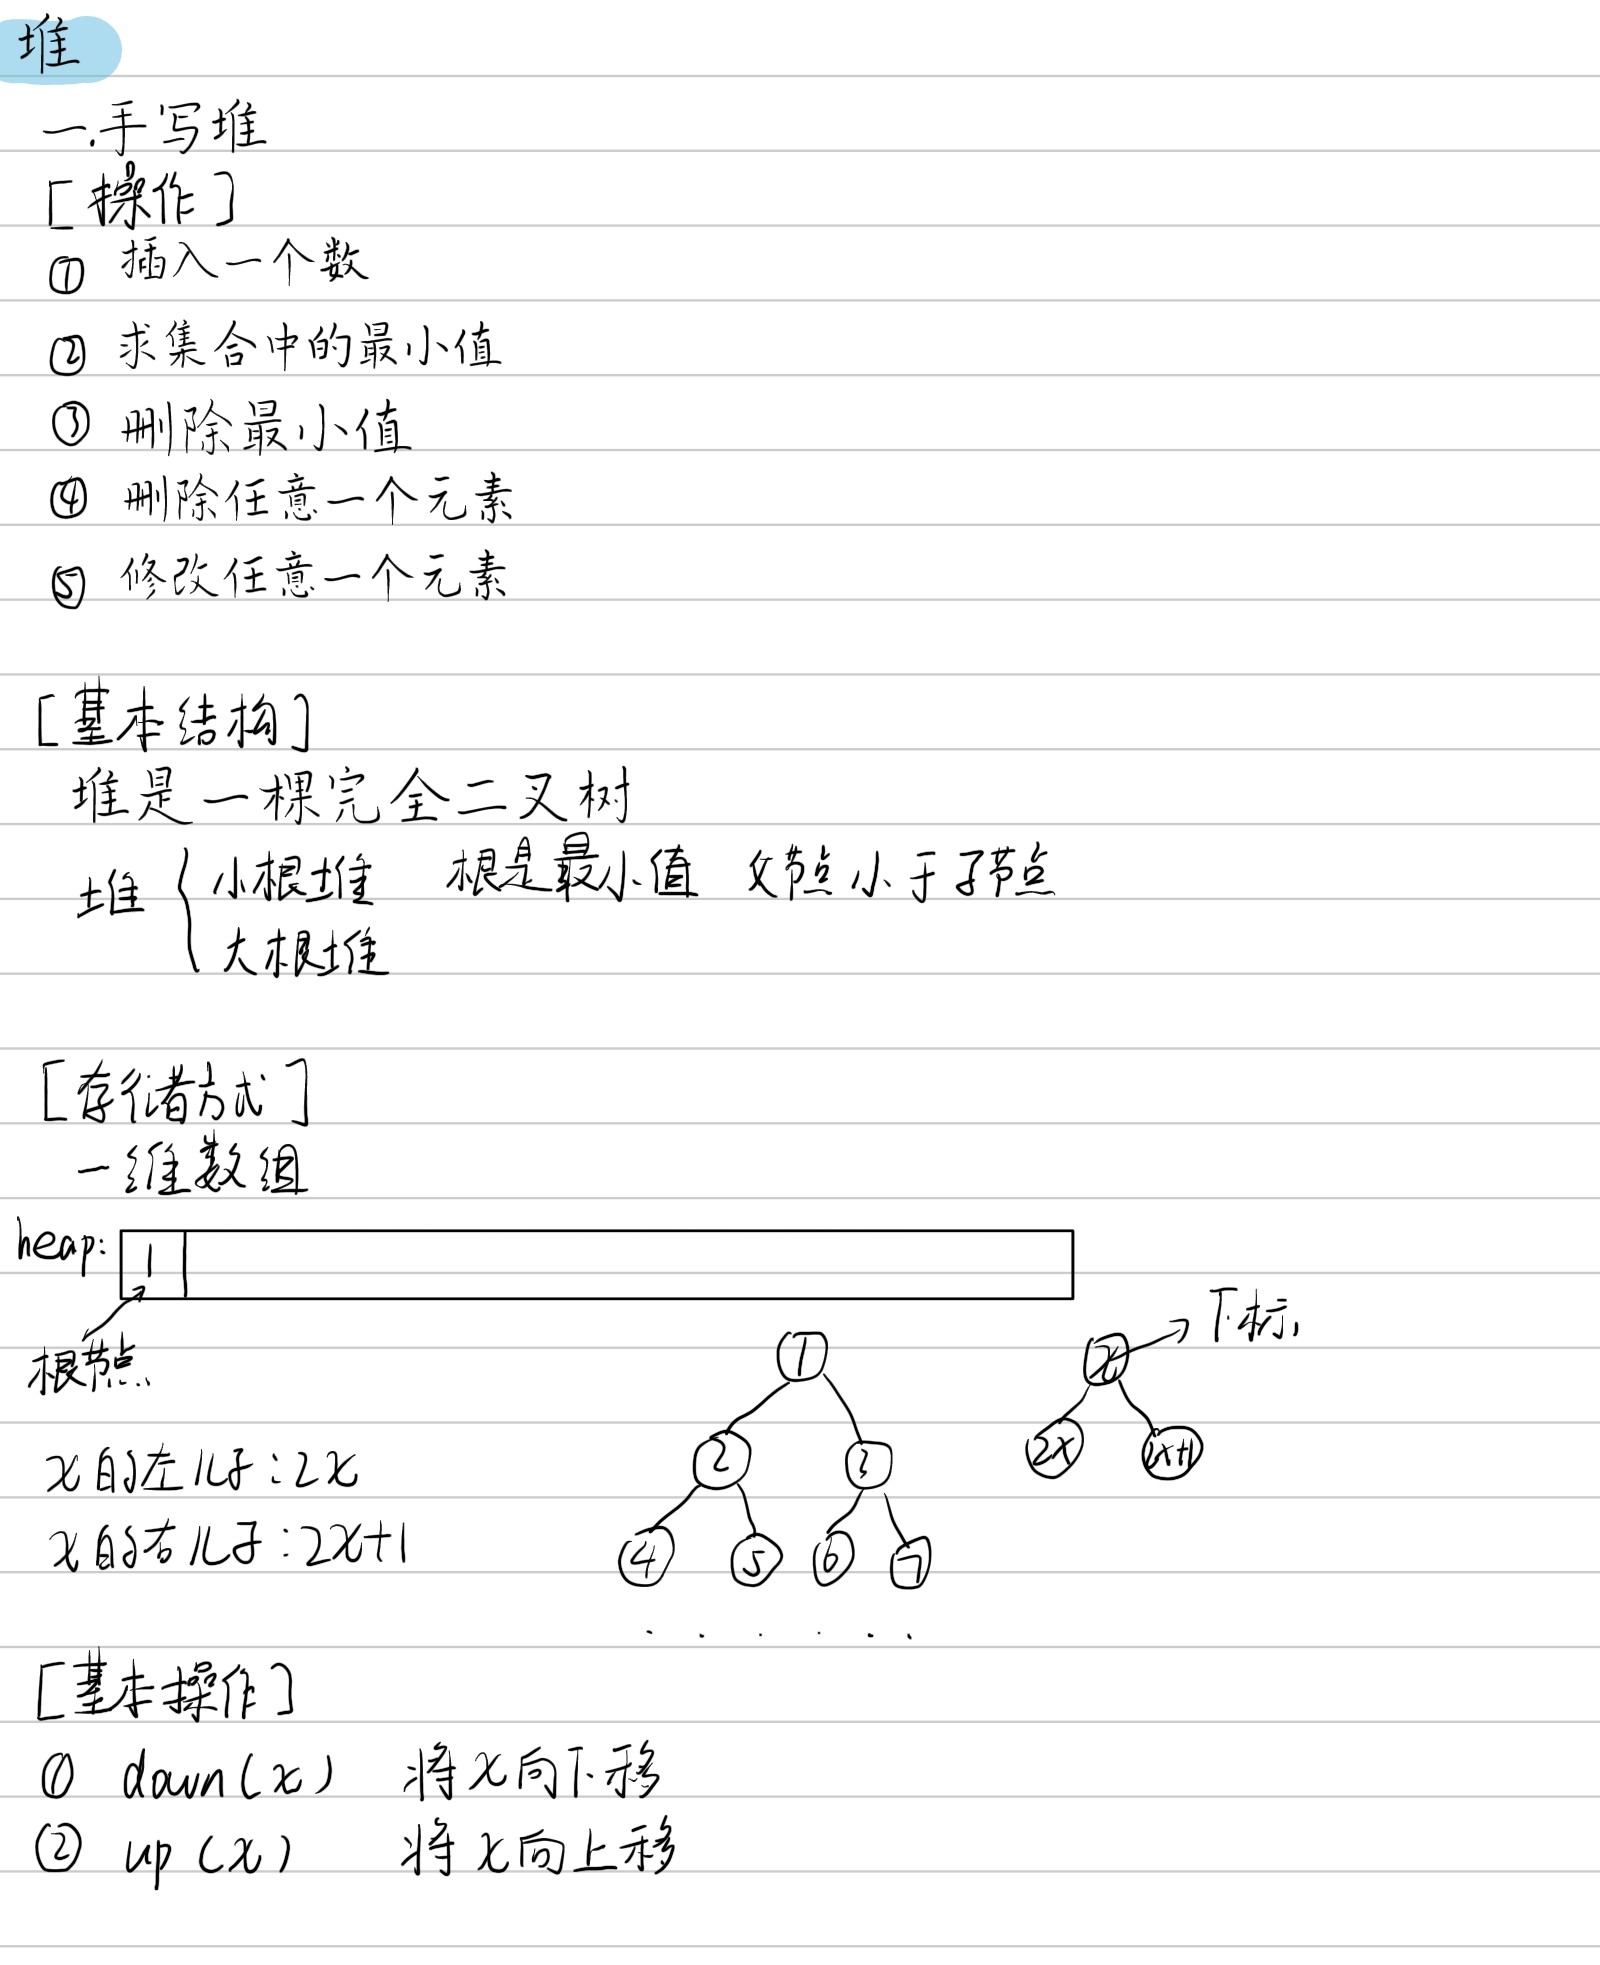 堆
一.手写堆
[操作]
① 插入一个数
② 求集合中的最小值
③ 删除最小值
④ 删除任意一个元素
⑤ 修改任意一个元素
[基本结构]
堆是一棵完全二叉树
堆 { 小根堆 根是最小值 父节点小于子节点
大根堆
[存储方式]
一维数组
heap: 1
根节点
1
2 3
4 5 6 7
. . . . . .
x → 下标
2x 2x+1
x的左儿子:2x
x的右儿子:2x+1
[基本操作]
① down(x) 将x向下移
② up(x) 将x向上移